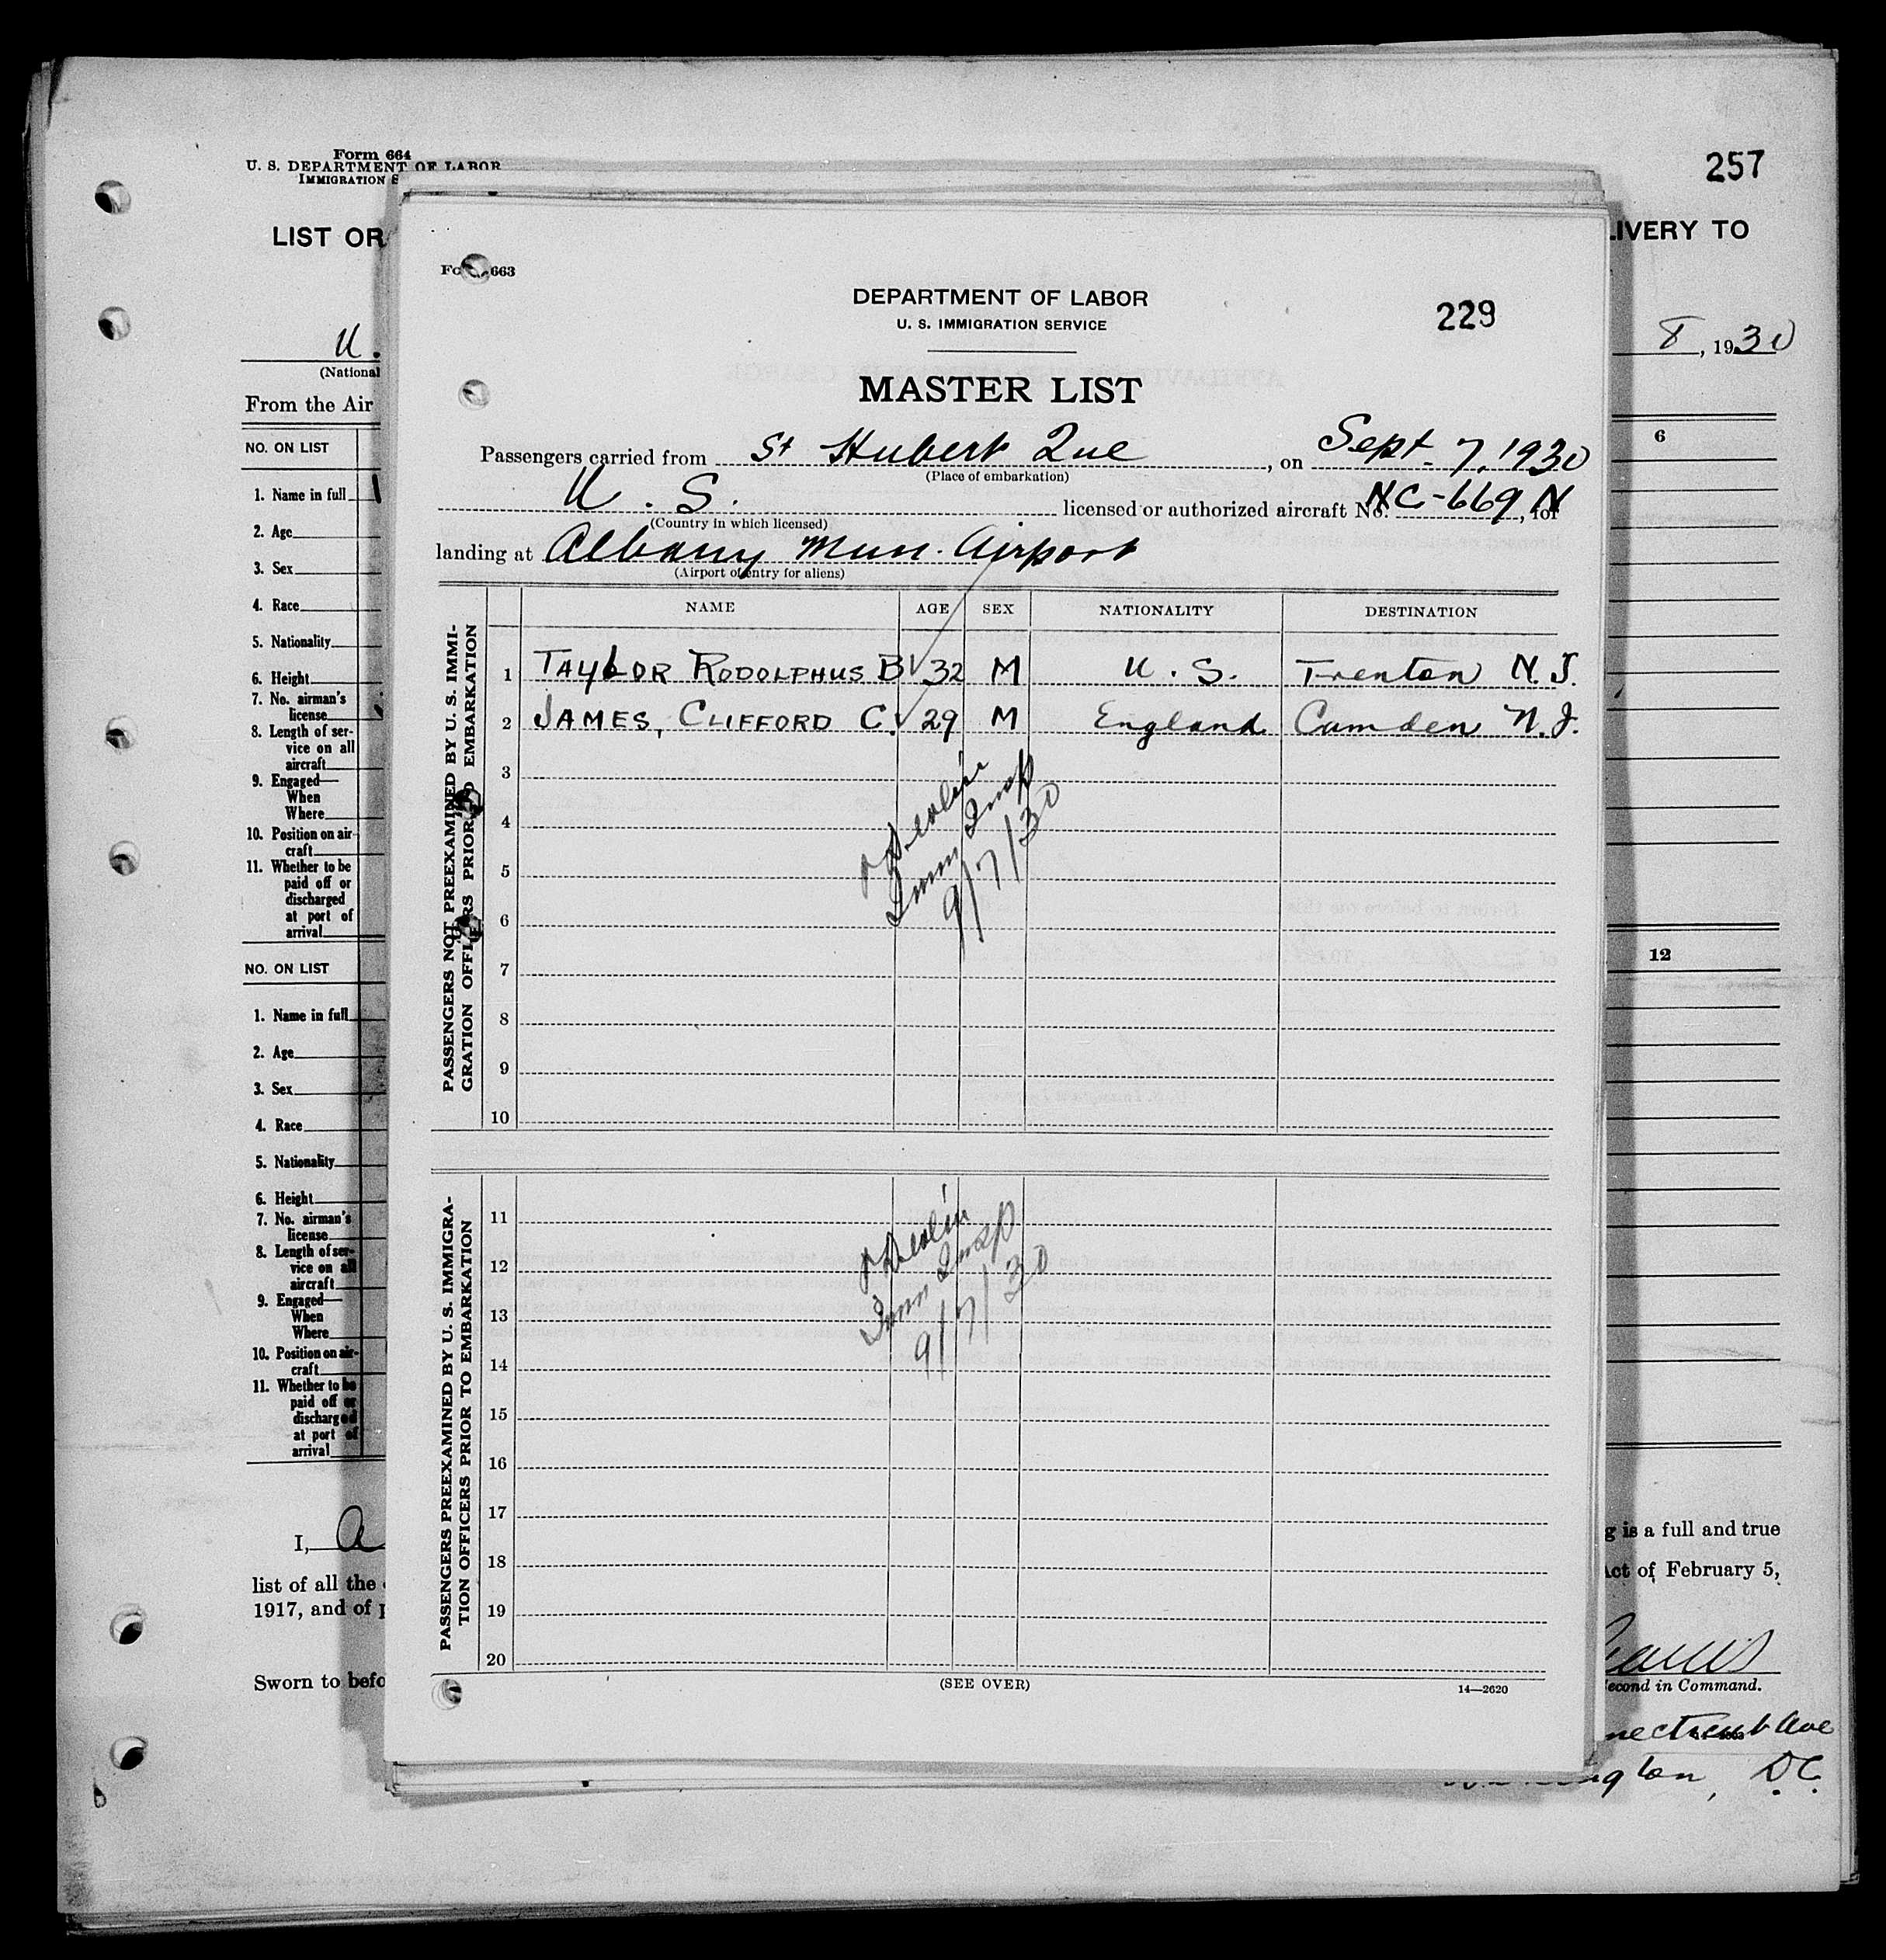 Form 664
U. S. DEPARTMENT OF LABOR
IMMIGRATION S
257
LIST OR
LIVERY TO
U.
(National
8, 1930
From the Air
NO. ON LIST
6
1. Name in full
2. Age
3. Sex
4. Race
5. Nationality
6. Height
7. No. airman's
license
8. Length of ser-
vice on all
aircraft
9. Engaged—
When
Where
10. Position on air-
craft
11. Whether to be
paid off or
discharged
at port of
arrival
NO. ON LIST
12
1. Name in full
2. Age
3. Sex
4. Race
5. Nationality
6. Height
7. No. airman's
license
8. Length of ser-
vice on all
aircraft
9. Engaged—
When
Where
10. Position on air-
craft
11. Whether to be
paid off or
discharged
at port of
arrival
I, A
g is a full and true
list of all the
Act of February 5,
1917, and of p
Sworn to befo
Second in Command.
necticut Ave
ngton, D.C.
Form 663
DEPARTMENT OF LABOR
U. S. IMMIGRATION SERVICE
229
MASTER LIST
Passengers carried from St Hubert Que, on Sept. 7, 1930
(Place of embarkation)
U. S. licensed or authorized aircraft No. NC-669N, for
(Country in which licensed)
landing at Albany Mun. Airport
(Airport of entry for aliens)
PASSENGERS NOT PREEXAMINED BY U. S. IMMI-
GRATION OFFICERS PRIOR TO EMBARKATION
NAME AGE SEX NATIONALITY DESTINATION
1 TAYLOR RODOLPHUS B 32 M U. S. Trenton N.J.
2 JAMES, CLIFFORD C. 29 M England Camden N.J.
3
4
5
6
7
8
9
10
Devlin
Imm Insp
9/7/30
PASSENGERS PREEXAMINED BY U. S. IMMIGRA-
TION OFFICERS PRIOR TO EMBARKATION
11
12
13
14
15
16
17
18
19
20
Devlin
Imm Insp
9/7/30
(SEE OVER)
14—2620